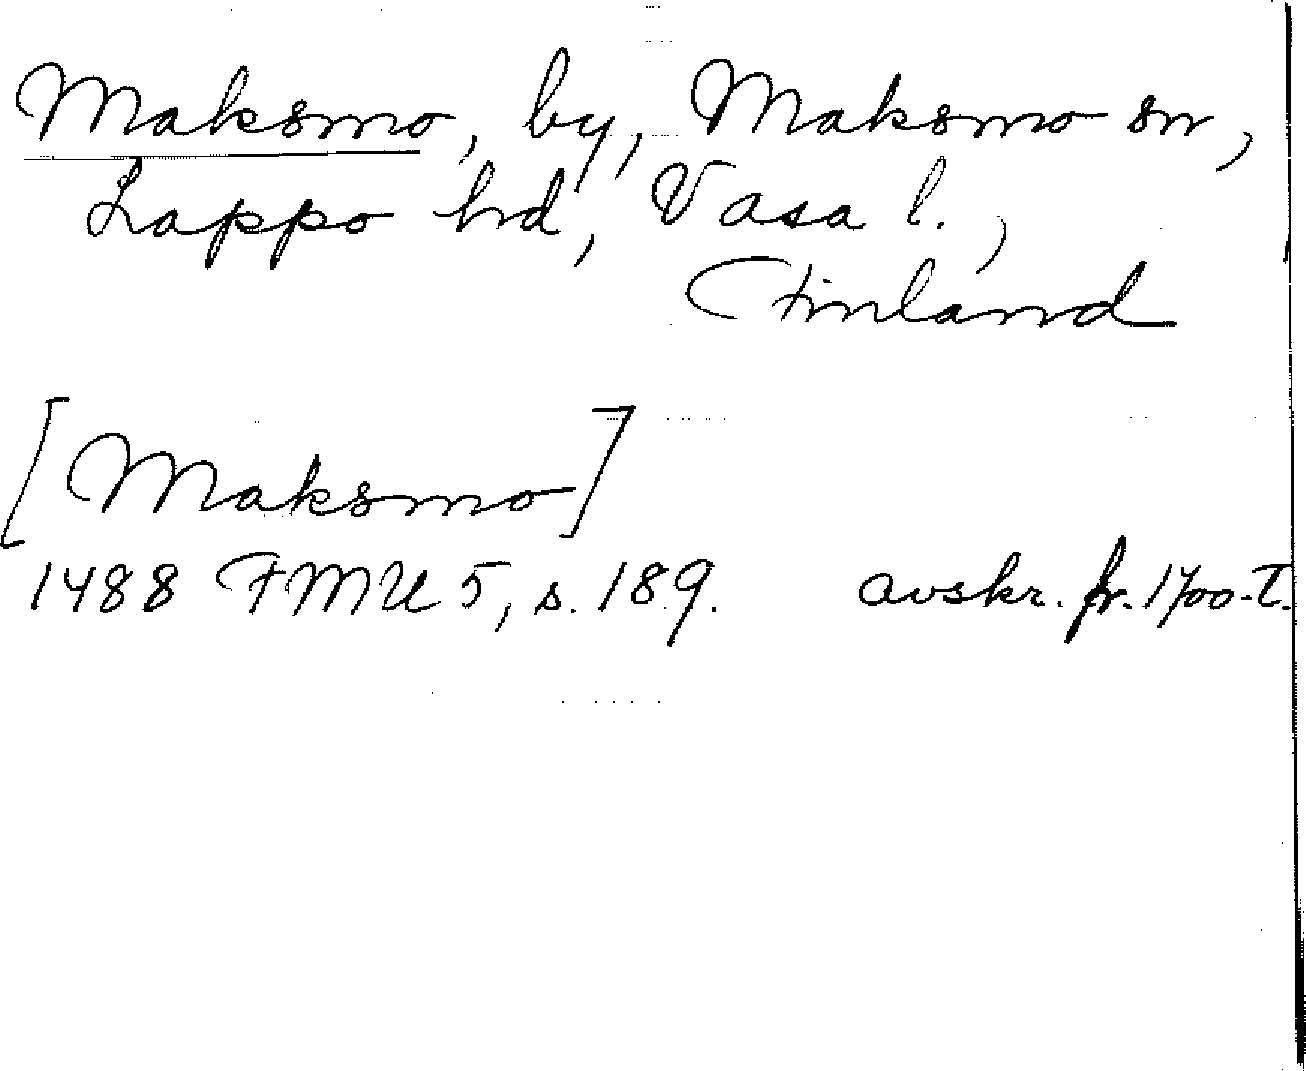 Maksmo, by, Maksmo sn,
Lappo hd, Vasa l.,
Finland
[Maksmo]
1488 FMU 5, s. 189. avskr. fr. 1700-t.